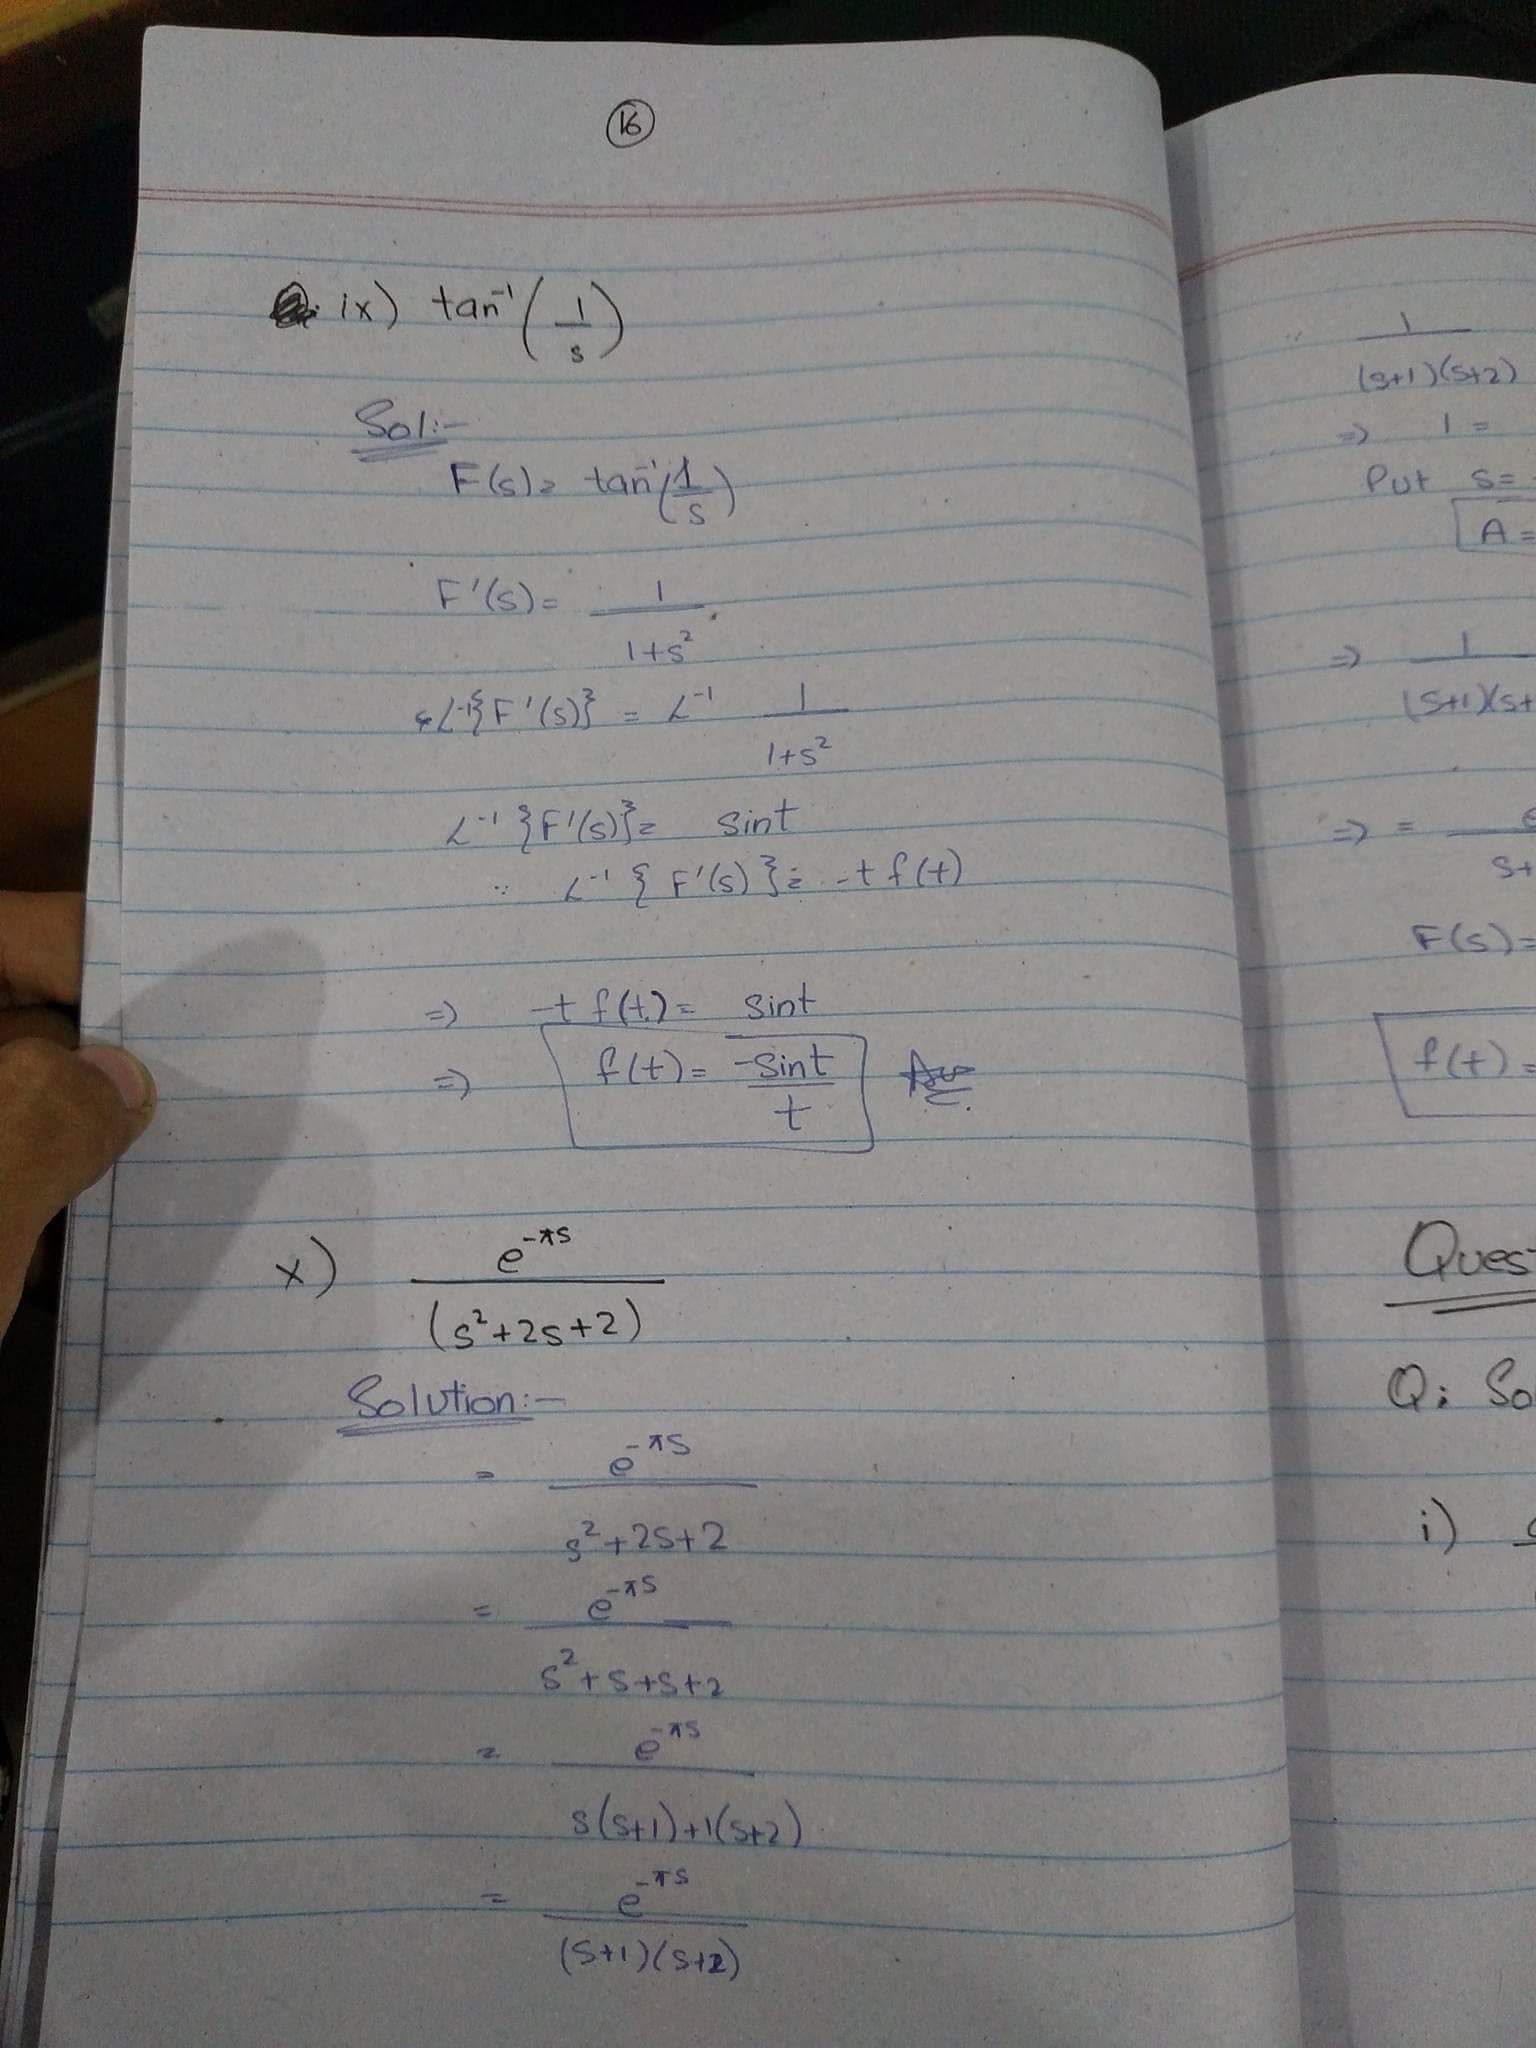 16
ix) tan⁻¹(1/s)
Sol:-
F(s) = tan⁻¹(1/s)
F'(s) = 1/1+s²
L⁻¹{F'(s)} = L⁻¹ 1/1+s²
L⁻¹{F'(s)} = sint
∵ L⁻¹{F'(s)} = -t f(t)
=> -t f(t) = sint
=> f(t) = -sint/t
x) e^-πs/(s²+2s+2)
Solution:-
= e^-πs/s²+2s+2
= e^-πs/s²+s+s+2
= e^-πs/s(s+1)+1(s+2)
= e^-πs/(s+1)(s+2)
1/(s+1)(s+2)
=> 1 =
Put s=
A=
=> 1/(s+1)(s+
=> =
s+
F(s)=
f(t)=
Ques
Q: So
i)